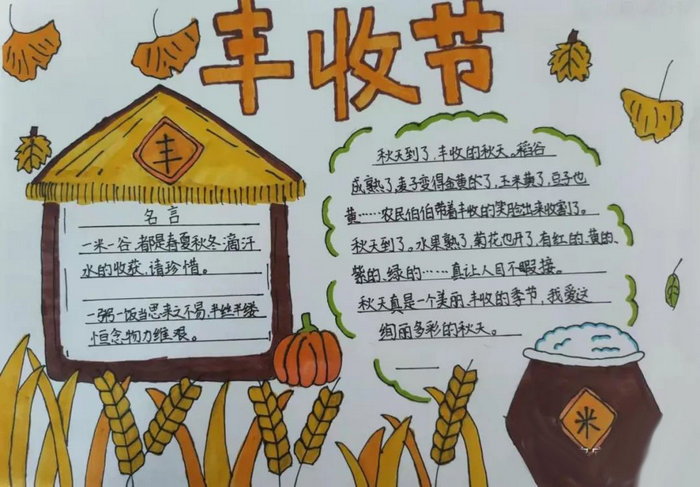 丰收节
丰
名言
一米一谷,都是春夏秋冬,滴汗
水的收获,请珍惜。
一粥一饭当思来之不易,半丝半缕
恒念物力维艰。
秋天到了,丰收的秋天。稻谷
成熟了,麦子变得金黄的了,玉米黄了,豆子也
黄……农民伯伯带着丰收的笑脸出来收割了。
秋天到了。水果熟了,菊花也开了,有红的、黄的、
紫的、绿的……真让人目不暇接。
秋天真是一个美丽、丰收的季节,我爱这
绚丽多彩的秋天。
米